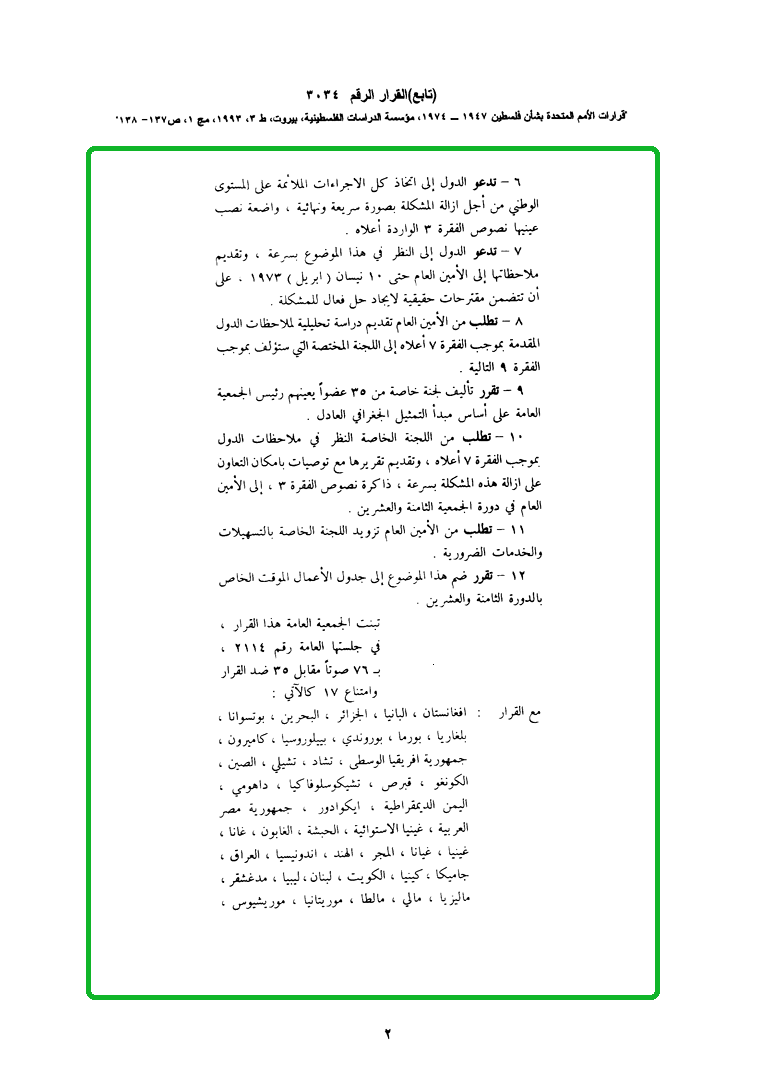 (تابع)القرار الرقم ٣٠٣٤
"قرارات الأمم المتحدة بشأن فلسطين ١٩٤٧ ــ ١٩٧٤، مؤسسة الدراسات الفلسطينية، بيروت، ط ٣، ١٩٩٣، مج ١، ص١٣٧- ١٣٨"
٦ – تدعو الدول إلى اتخاذ كل الاجراءات الملائمة على المستوى
الوطني من أجل ازالة المشكلة بصورة سريعة ونهائية ، واضعة نصب
عينيها نصوص الفقرة ٣ الواردة أعلاه .
٧ – تدعو الدول إلى النظر في هذا الموضوع بسرعة ، وتقديم
ملاحظاتها إلى الأمين العام حتى ١٠ نيسان ( ابريل ) ١٩٧٣ ، على
أن تتضمن مقترحات حقيقية لايجاد حل فعال للمشكلة .
٨ – تطلب من الأمين العام تقديم دراسة تحليلية لملاحظات الدول
المقدمة بموجب الفقرة ٧ أعلاه إلى اللجنة المختصة التي ستؤلف بموجب
الفقرة ٩ التالية .
٩ – تقرر تأليف لجنة خاصة من ٣٥ عضواً يعينهم رئيس الجمعية
العامة على أساس مبدأ التمثيل الجغرافي العادل .
١٠ – تطلب من اللجنة الخاصة النظر في ملاحظات الدول
بموجب الفقرة ٧ أعلاه ، وتقديم تقريرها مع توصيات بامكان التعاون
على ازالة هذه المشكلة بسرعة ، ذاكرة نصوص الفقرة ٣ ، إلى الأمين
العام في دورة الجمعية الثامنة والعشرين .
١١ – تطلب من الأمين العام تزويد اللجنة الخاصة بالتسهيلات
والخدمات الضرورية .
١٢ – تقرر ضم هذا الموضوع إلى جدول الأعمال الموقت الخاص
بالدورة الثامنة والعشرين .
تبنت الجمعية العامة هذا القرار ،
في جلستها العامة رقم ٢١١٤ ،
بـ ٧٦ صوتاً مقابل ٣٥ ضد القرار
وامتناع ١٧ كالآتي :
مع القرار : افغانستان ، البانيا ، الجزائر ، البحرين ، بوتسوانا ،
بلغاريا ، بورما ، بوروندي ، بييلوروسيا ، كاميرون ،
جمهورية افريقيا الوسطى ، تشاد ، تشيلي ، الصين ،
الكونغو ، قبرص ، تشيكوسلوفاكيا ، داهومي ،
اليمن الديمقراطية ، ايكوادور ، جمهورية مصر
العربية ، غينيا الاستوائية ، الحبشة ، الغابون ، غانا ،
غينيا ، غيانا ، المجر ، الهند ، اندونيسيا ، العراق ،
جاميكا ، كينيا ، الكويت ، لبنان ، ليبيا ، مدغشقر ،
ماليزيا ، مالي ، مالطا ، موريتانيا ، موريشيوس ،
٢